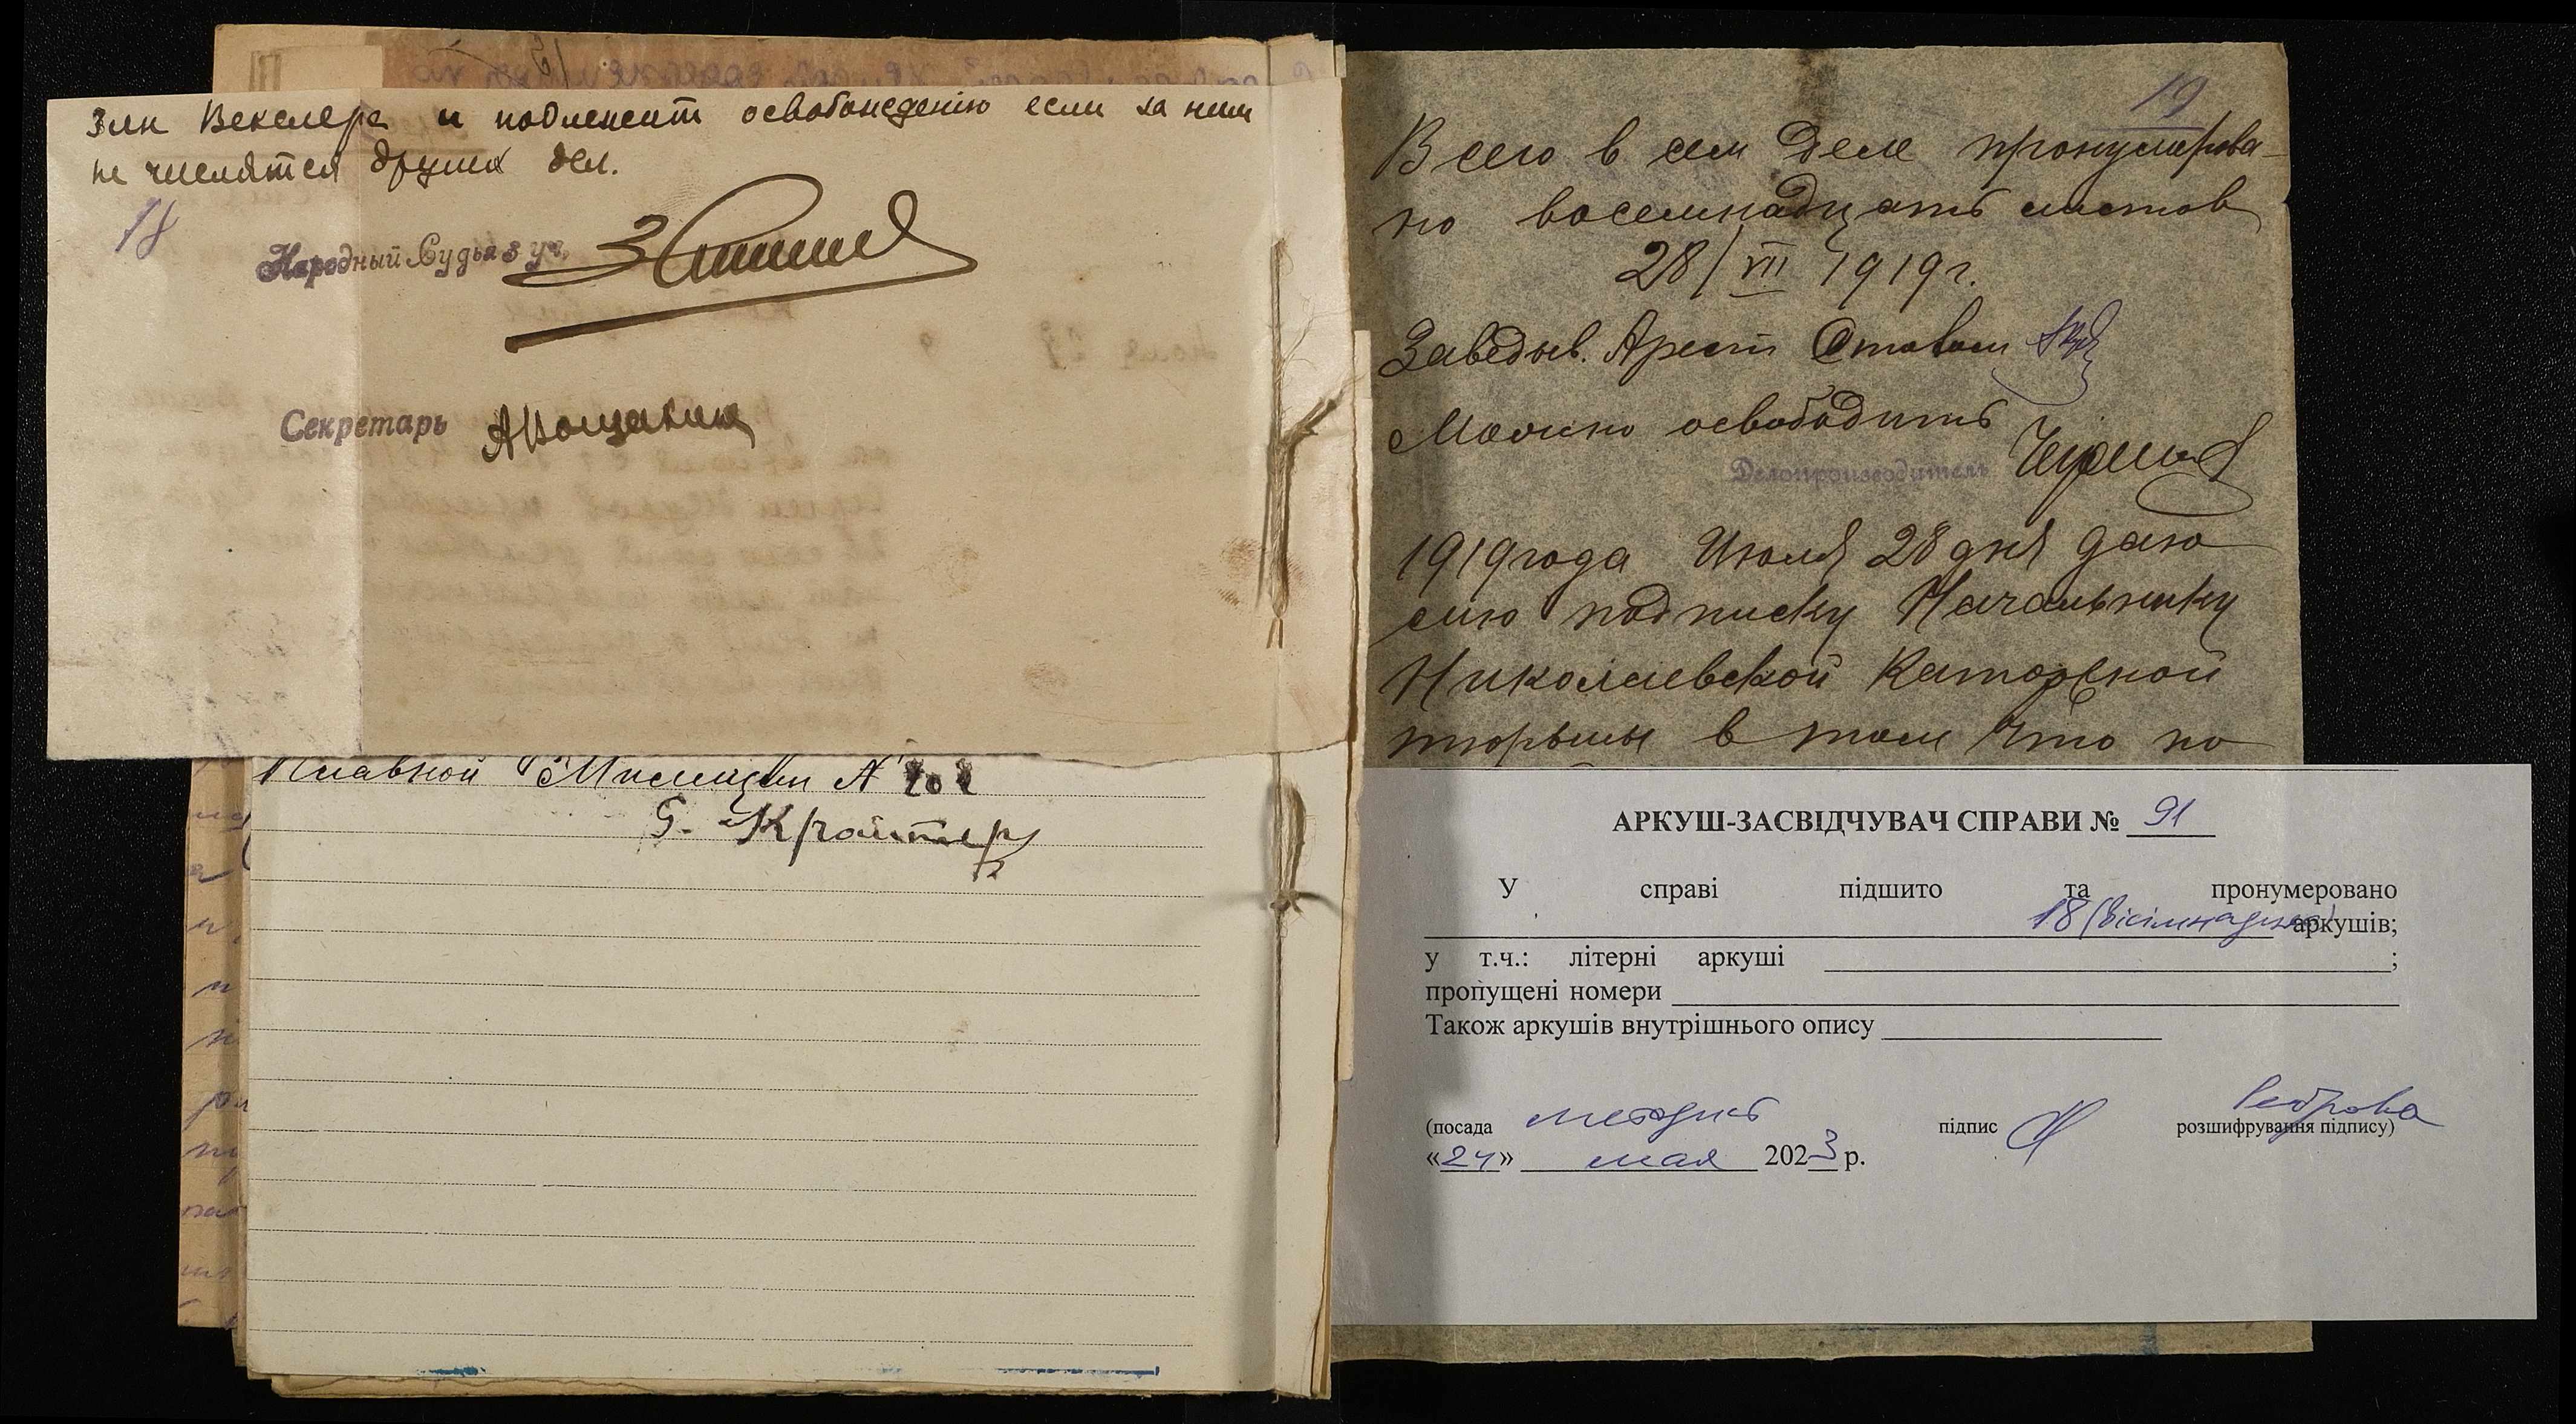 Зик Векслера и подлежит освобождению если за ним
не числятся других дел.
18
Народный Судья 3 уч.
Секретарь
Главной Милиции № 202
Г. Крайтер
19
Всего в сем деле пронумерова-
но восемнадцать листов
28/VII 1919 г.
Заведыв. Арест Столом
Можно освободить
Делопроизводитель
1919 года Июля 28 дня даю
сию подписку Начальнику
Николаевской Каторжной
тюрьмы в том что по
АРКУШ-ЗАСВІДЧУВАЧ СПРАВИ № 91
У справі підшито та пронумеровано
18 (вісімнадцять) аркушів;
у т.ч.: літерні аркуші ;
пропущені номери
Також аркушів внутрішнього опису
(посада методист підпис Реброва розшифрування підпису)
«24» мая 2023 р.